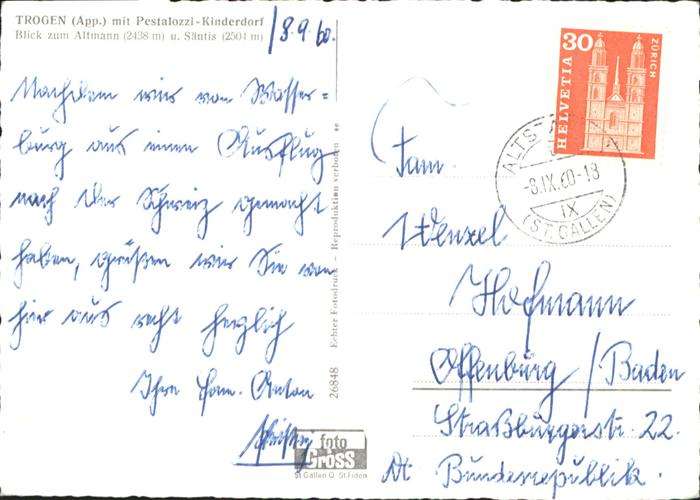 TROGEN (App.) mit Pestalozzi-Kinderdorf
Blick zum Altmann (2438 m) u. Säntis (2504 m)
8.9.60.
Nachdem wir von Wasser=
burg aus einen Ausflug
nach der Schweiz gemacht
haben, grüßen wir Sie von
hier aus recht herzlich
Ihre Fam. Anton
26848 Echter Fotodruck - Reproduktion verboten
foto
Gross
St Gallen O St Fiden
HELVETIA 30
ZÜRICH
-8.IX.60-18
IX
(ST. GALLEN)
Fam.
Wenzel
Hofmann
Offenburg / Baden
Straßburgerstr. 22.
Dt Bundesrepublik.